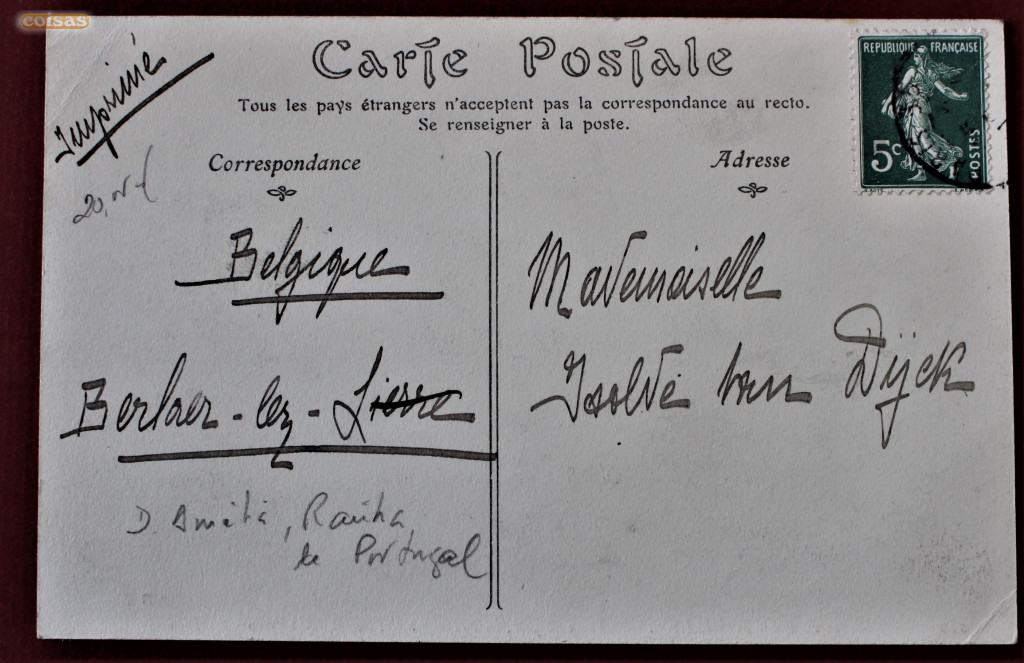 coisas
Carte Postale
Imprimé
Tous les pays étrangers n'acceptent pas la correspondance au recto.
Se renseigner à la poste.
REPUBLIQUE FRANÇAISE
5c
POSTES
Correspondance
Adresse
Belgique
Berlaer-lez-Lierre
D. Amélia, Rainha
de Portugal
Mademoiselle
Isolde van Dÿck